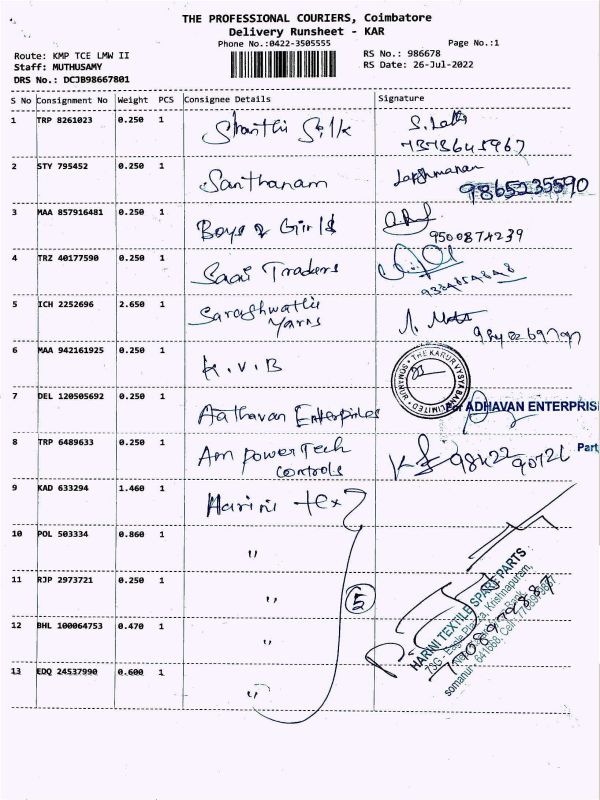 THE PROFESSIONAL COURIERS, Coimbatore
Delivery Runsheet - KAR
Phone No.:0422-3505555
Page No.:1
Route: KMP TCE LMW II
RS No.: 986678
Staff: MUTHUSAMY
RS Date: 26-Jul-2022
DRS No.: DCJB98667801
S No Consignment No Weight PCS Consignee Details Signature
1 TRP 8261023 0.250 1 Shanthi Silk S. Latha
7373645967
2 STY 795452 0.250 1 Santhanam Lakshmanan
9865235590
3 MAA 857916481 0.250 1 Boys & Girls
9500874239
4 TRZ 40177590 0.250 1 Saai Traders
5 ICH 2252696 2.650 1 Sarashwathi
Yarns
6 MAA 942161925 0.250 1 K.V.B
THE KARUR VYSYA BANK LIMITED SOMANUR
7 DEL 120505692 0.250 1 Aathavan Enterprises
For ADHAVAN ENTERPRIS
8 TRP 6489633 0.250 1 Am powerTech
controls
98422 90726
Part
9 KAD 633294 1.460 1 Harini tex
10 POL 503334 0.860 1 "
11 RJP 2973721 0.250 1 "
5
12 BHL 100064753 0.470 1 "
13 EDQ 24537990 0.600 1 "
HARINI TEXTILE SPARE PARTS
73G - Eagle Plaza, Krishnapuram,
somanur - 641668, Cell